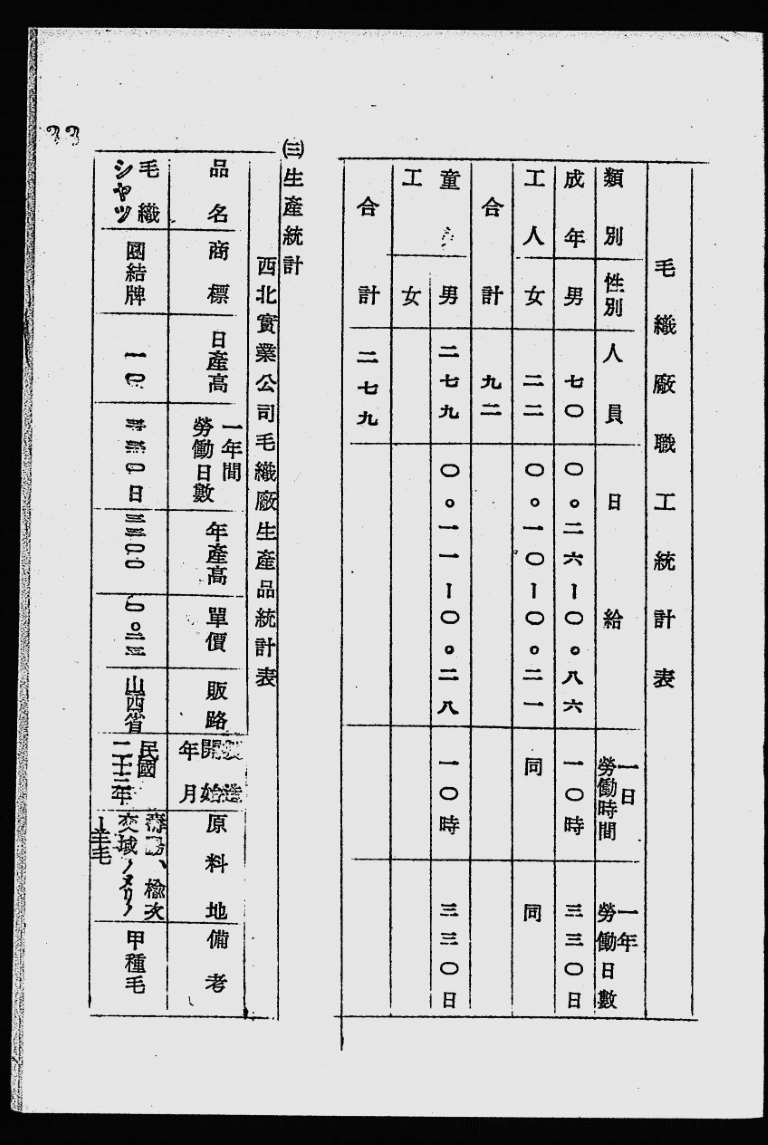 毛織廠職工統計表
類別 性別 人員 日給 一日勞働時間 一年勞働日數
成年工人 男 七〇 〇。二六ー〇。八六 一〇時 三三〇日
女 二二 〇。一〇ー〇。二一 同 同
合計 九二
童工 男 二七九 〇。一一ー〇。二八 一〇時 三三〇日
女
合計 二七九
㈢生產統計
西北實業公司毛織廠生產品統計表
品名 商標 日產高 一年間勞働日數 年產高 單價 販路 製造開始年月 原料地 備考
毛織シヤツ 團結牌 一〇 三三〇日 三三〇〇 山西省 民國二十三年 楡次 交城 羊毛 甲種毛
33